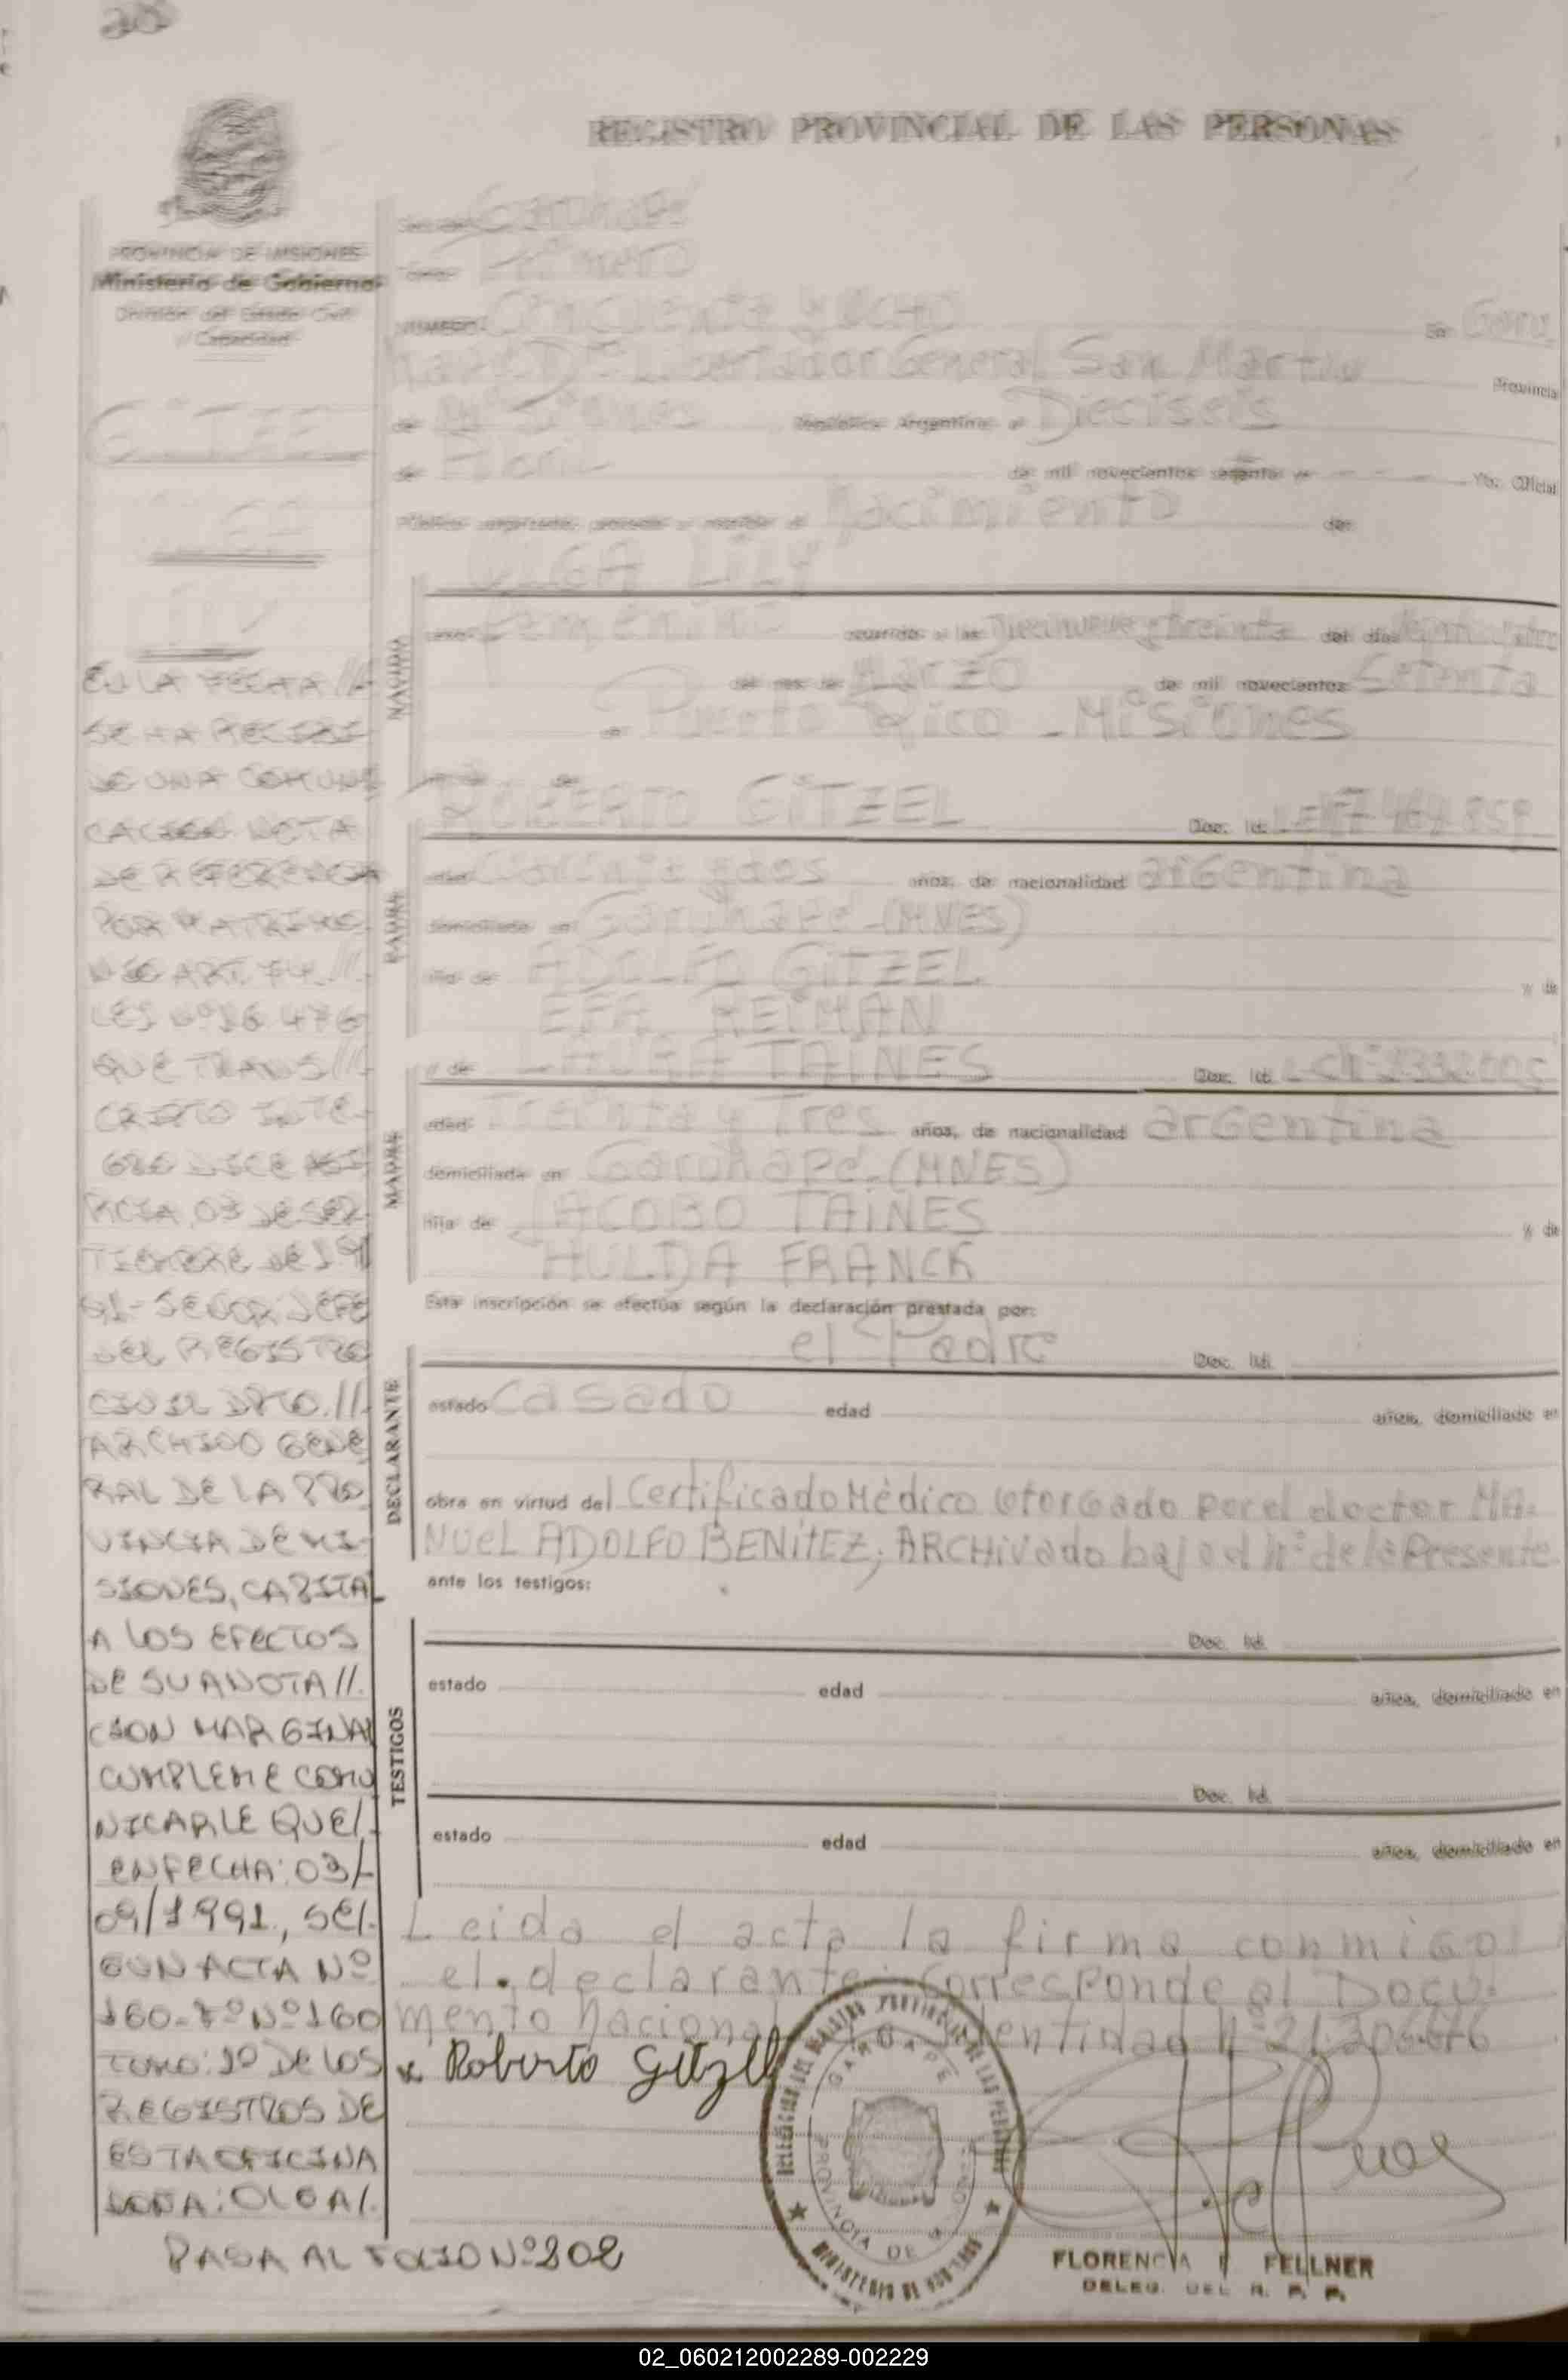 20
REGISTRO PROVINCIAL DE LAS PERSONAS
PROVINCIA DE MISIONES
Ministerio de Gobierno
División del Estado Civil
y Capacidad
GITZEL
Sección Garuhapé
Tomo Primero
NUMERO Cincuenta y Ocho En Garu
hapé Dº Libertador General San Martin Provincia
de Misiones República Argentina a Dieciseis
de Abril de mil novecientos setenta y - - - - Yo, Oficial
Público autorizado, procedo a inscribir el Nacimiento de:
OLGA LILY
NACIDO
sexo Femenino ocurrido a las Diecinueve y treinta del día
del mes de Marzo de mil novecientos Setenta
en Puerto Rico - Misiones
ROBERTO GITZEL Doc. Id.
PADRE
edad Cuarenta y dos años, de nacionalidad arGentina
domiciliado en Garuhapé - (MNES)
hijo de ADOLFO GITZEL y de
EFA REIMAN
y de LAURA TAINES Doc. Id.
MADRE
edad Treinta y Tres años, de nacionalidad arGentina
domiciliada en Garuhapé - (MNES)
hija de JACOBO TAINES y de
HULDA FRANCK
Esta inscripción se efectúa según la declaración prestada por:
el Padre Doc. Id.
DECLARANTE
estado Casado edad años, domiciliado en
obra en virtud del Certificado Médico otorGado por el doctor MA-
NUEL ADOLFO BENITEZ; ARCHivado bajo el Nº de la Presente
ante los testigos:
TESTIGOS
Doc. Id.
estado edad años, domiciliado en
Doc. Id.
estado edad años, domiciliado en
Leida el acta la firma conmiGo
el declarante: Corresponde al Docu-
mento Nacional de Identidad Nº 21.306676
x Roberto Gitzel
EN LA FECHA //
SE HA RECIBI
DO UNA COMUNI
CACION NOTA
DE REFERENCIA
POR MATRIMO
NIO ART. 74 //
LEY Nº 26 476
QUE TRANS //
CRIPTO INTE-
GRO DICE ASI
RCIA, 03 DE SEP
TIEMBRE DE 19
91- SEÑOR JEFE
DEL REGISTRO
CIVIL DPTO. //
ARCHIVO GENE
RAL DE LA PRO
VINCIA DE MI-
SIONES, CAPITAL
A LOS EFECTOS
DE SU ANOTA //.
CION MARGINAL
CUMPLEME COMU
NICARLE QUE /.
EN FECHA: 03/
09/1991, SE/.
GUN ACTA Nº
160-Fº Nº 160
TOMO: 1º DE LOS
REGISTROS DE
ESTA OFICINA
DOÑA: OLGA/.
PASA AL FOLIO Nº 202
DELEGACION DEL REGISTRO PROVINCIAL DE LAS PERSONAS
GARUHAPE
PROVINCIA DE
MINISTERIO DE GOBIERNO
FLORENCIA F FELLNER
DELEG. DEL R. P. P.
02_060212002289-002229